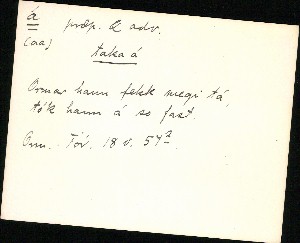 á præp. & adv.
(aa)
taka á
Ormar hann fekk megi tá,
tók hann á so fast.
Orm. Tór. 18 v. 54²